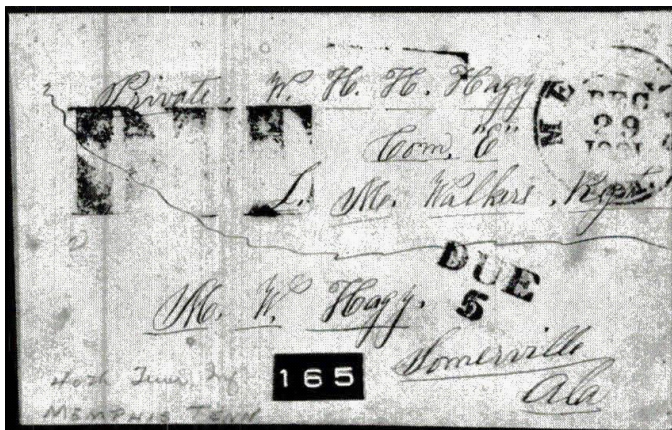 Private, W. H. H. Hagy
Com. "E"
L. M. Walkers. Regt.
M E
DEC
29
1861
DUE
5
M. W. Hagy.
Somerville
Ala
165
40th Tenn Inf
MEMPHIS TENN